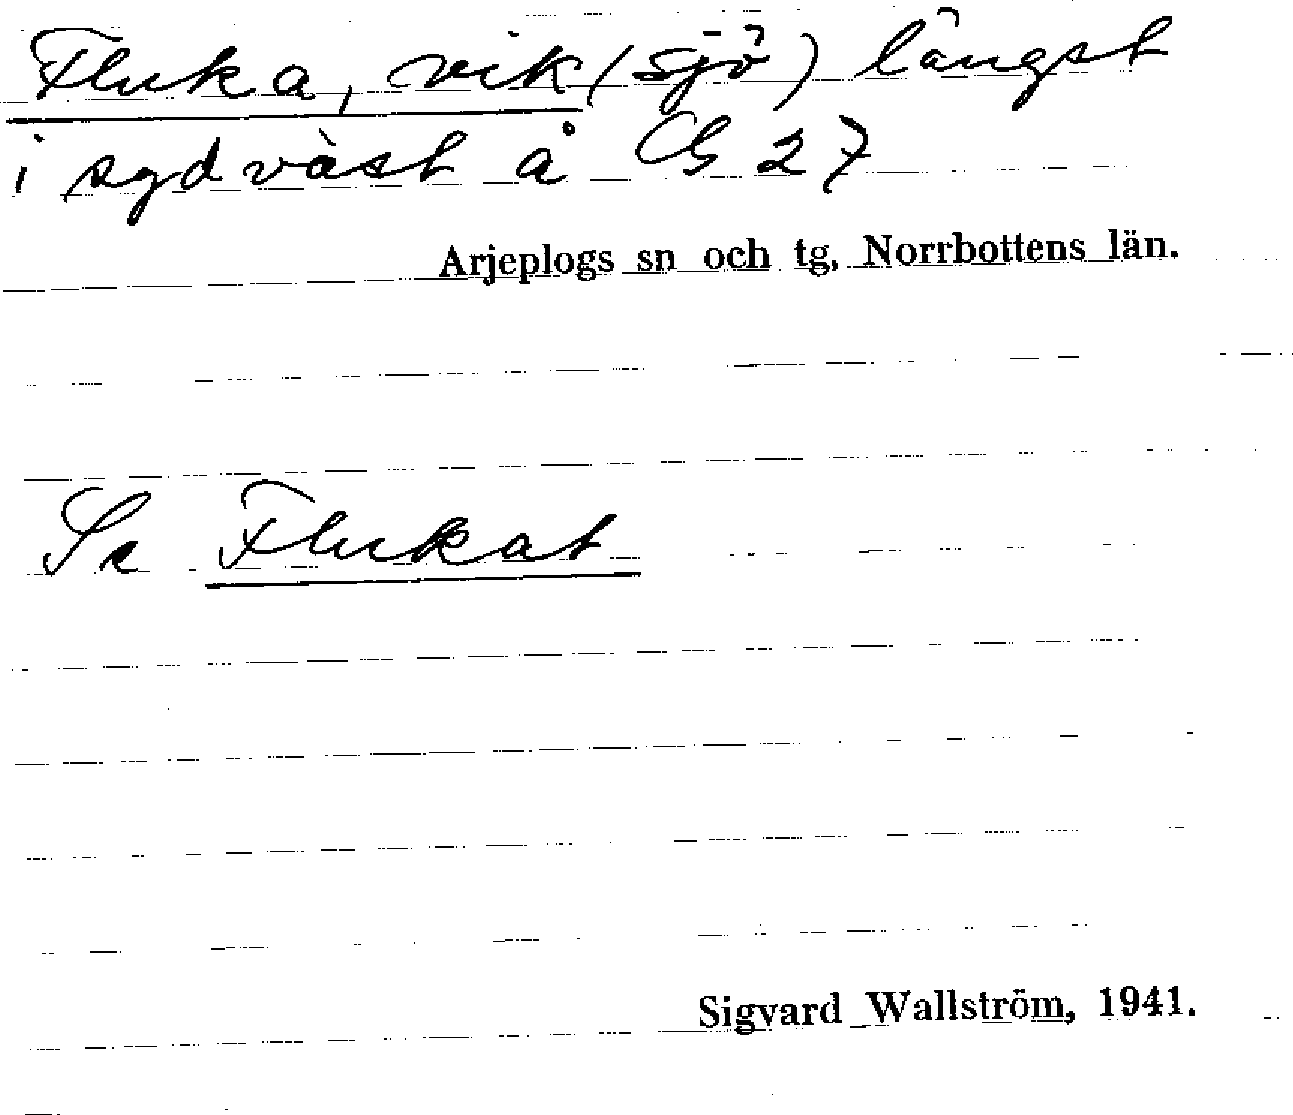 Fluka, vik (sjö) längst
i sydväst å G 27
Arjeplogs sn och tg, Norrbottens län.
Se Flukat
Sigvard Wallström, 1941.